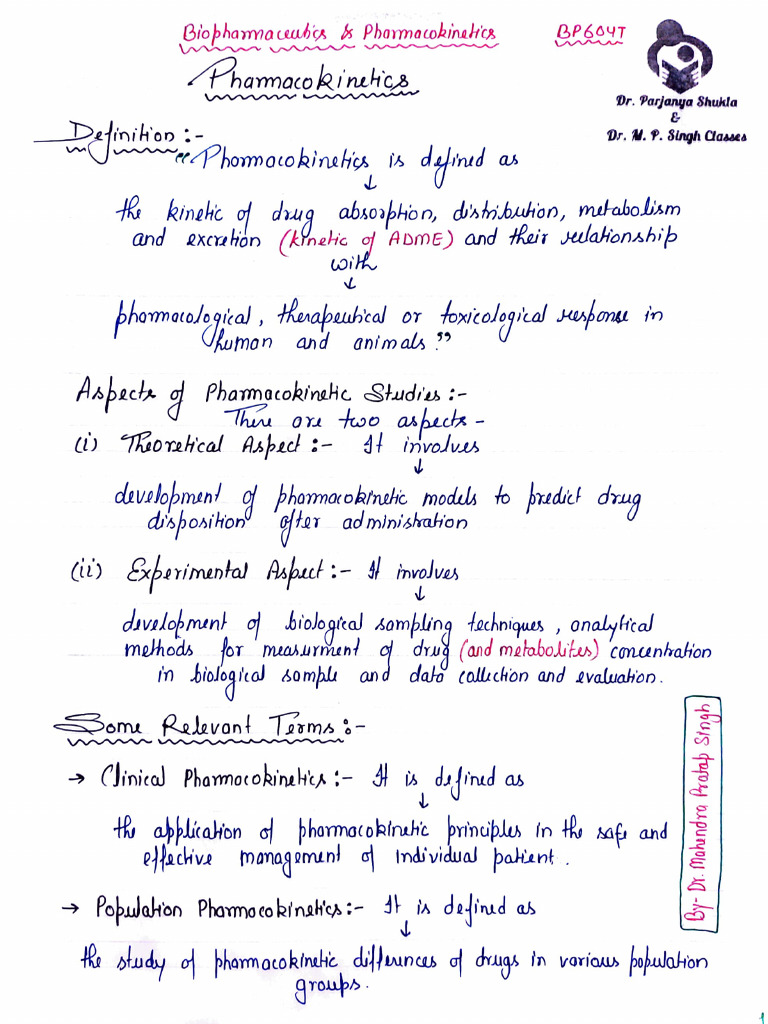 Biopharmaceutics & Pharmacokinetics BP604T
Dr. Parjanya Shukla
&
Dr. M. P. Singh Classes
Pharmacokinetics
Definition :-
"Pharmacokinetics is defined as
↓
the kinetic of drug absorption, distribution, metabolism
and excretion (kinetic of ADME) and their relationship
with
↓
pharmacological, therapeutical or toxicological response in
human and animals."
Aspects of Pharmacokinetic Studies :-
There are two aspects -
(i) Theoretical Aspect :- It involves
↓
development of pharmacokinetic models to predict drug
disposition after administration
(ii) Experimental Aspect :- It involves
↓
development of biological sampling techniques, analytical
methods for measurment of drug (and metabolites) concentration
in biological sample and data collection and evaluation.
Some Relevant Terms :-
→ Clinical Pharmacokinetics :- It is defined as
↓
the application of pharmacokinetic principles in the safe and
effective management of individual patient.
→ Population Pharmacokinetics :- It is defined as
↓
the study of pharmacokinetic differences of drugs in various population
groups.
By- Dr. Mahendra Pratap Singh
1